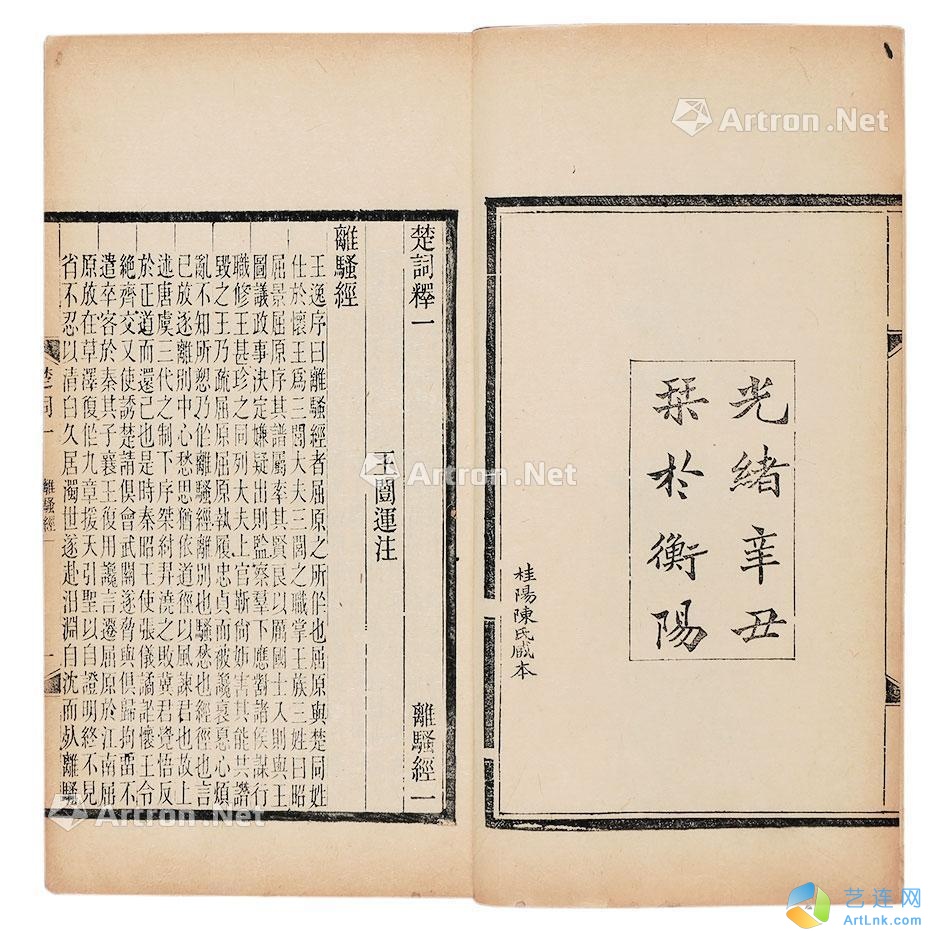 光緒辛丑
栞於衡陽
桂陽陳氏臧本
楚詞釋一
離騷經一
王闓運注
離騷經
王逸序曰離騷經者屈原之所作也屈原與楚同姓
仕於懷王爲三閭大夫三閭之職掌王族三姓曰昭
屈景屈原序其譜屬率其賢良以厲國士入則與王
圖議政事決定嫌疑出則監察羣下應對諸侯謀行
職修王甚珍之同列大夫上官靳尚妬害其能共譖
毀之王乃疏屈原屈原執履忠貞而被讒衺憂心煩
亂不知所愬乃作離騷經離別也騷愁也經徑也言
已放逐離別中心愁思猶依道徑以風諫君也故上
述唐虞三代之制下序桀紂羿澆之敗冀君覺悟反
於正道而還己也是時秦昭王使張儀譎詐懷王令
絶齊交又使誘楚請俱會武關遂脅與俱歸拘畱不
遣卒客於秦其子襄王復用讒言遷屈原於江南屈
原放在草澤復作九章援天引聖以自證明終不見
省不忍以清白久居濁世遂赴汨淵自沈而死離騷
楚詞一
離騷經
一
Artron.Net
Artron.Net
Artron.Net
艺连网
ArtLnk.com